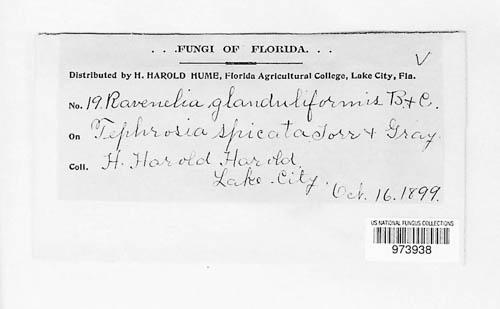 . . .FUNGI OF FLORIDA. . .
V
Distributed by H. HAROLD HUME, Florida Agricultural College, Lake City, Fla.
No. 19. Ravenelia glanduliformis B & C.
On Tephrosia spicata Torr & Gray.
Coll. H. Harold Harold.
Lake City. Oct. 16. 1899.
US NATIONAL FUNGUS COLLECTIONS
973938